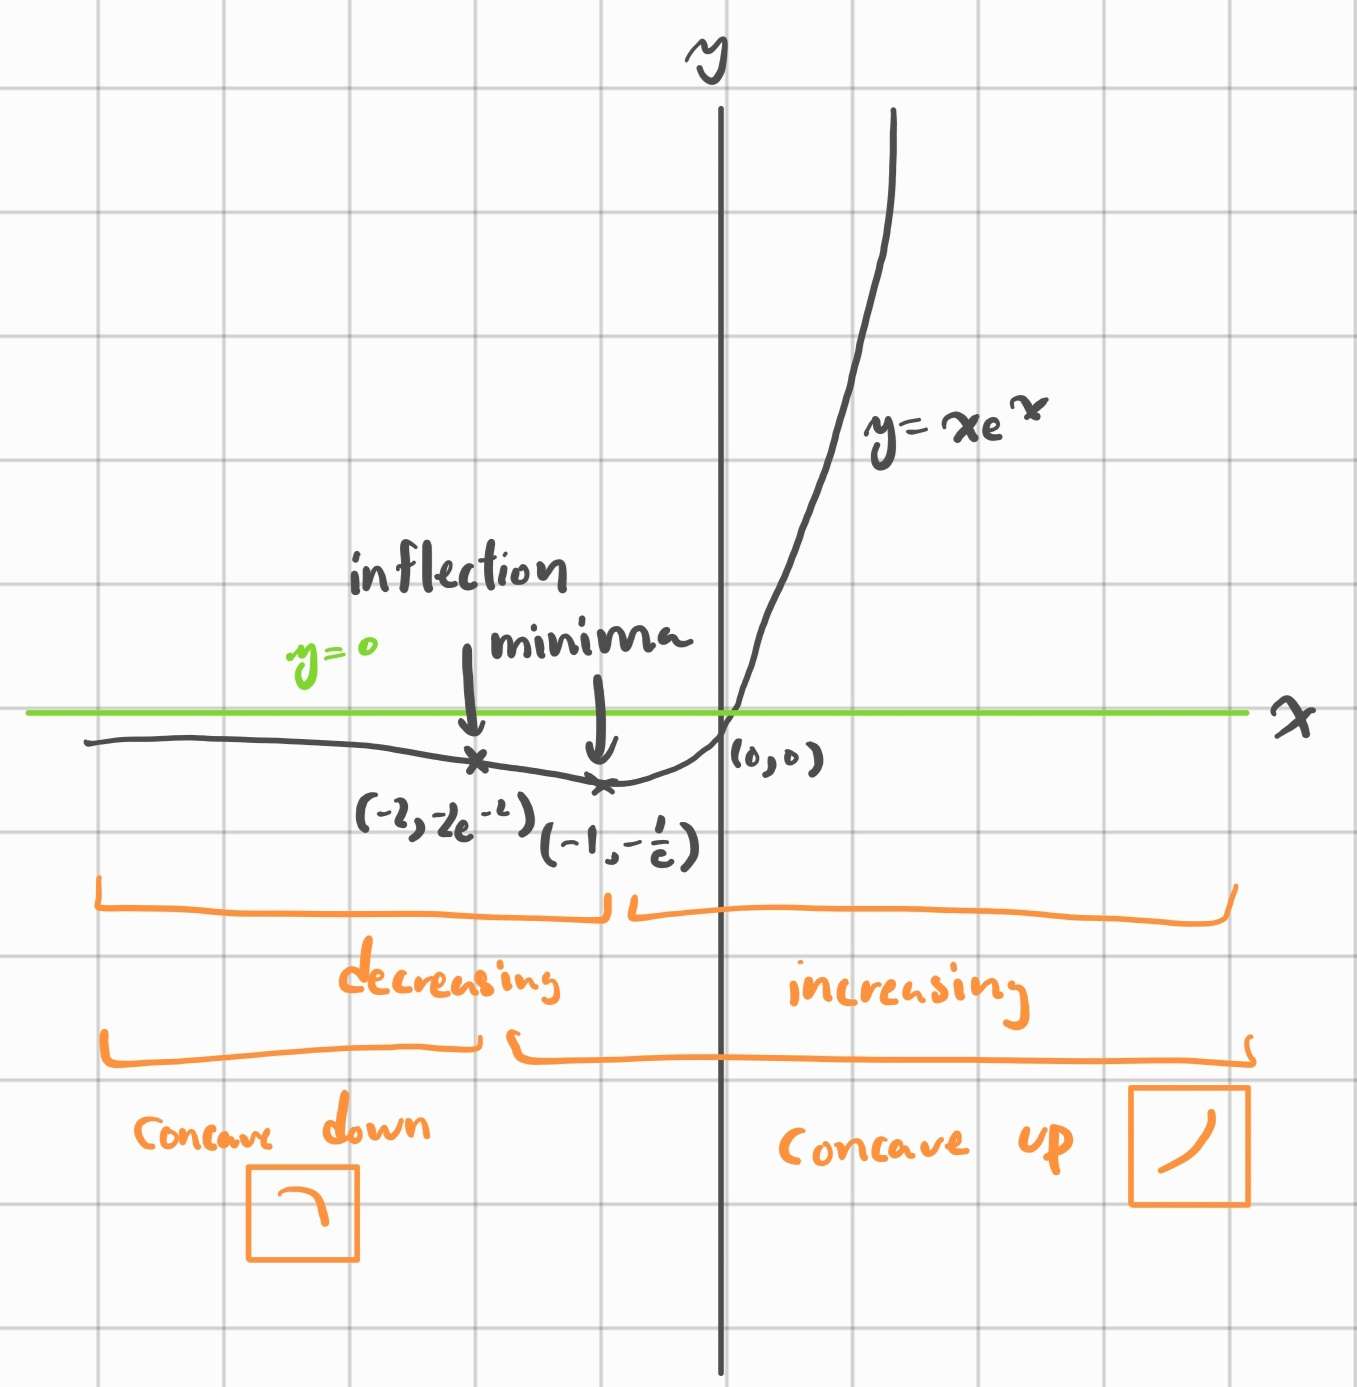 y
y = xeˣ
inflection
minima
y=0
x
(0,0)
(-2, -2e⁻²)
(-1, -1/e)
decreasing
increasing
Concave down
Concave up